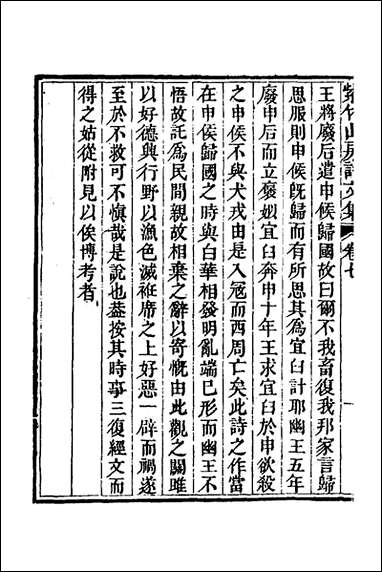 紫竹山房詩文集 卷七
王將廢后遣申侯歸國故曰爾不我畜復我邦家言歸
思服則申侯旣歸而有所思其為宜臼計耶幽王五年
廢申后而立褒姒宜臼奔申十年王求宜臼於申欲殺
之申侯不與犬戎由是入冦而西周亡矣此詩之作當
在申侯歸國之時與白華相發明亂端已形而幽王不
悟故託為民間親故相棄之辭以寄慨由此觀之關雎
以好德興行野以漁色滅袵席之上好惡一辟而禍遂
至於不救可不慎哉是說也葢按其時事三復經文而
得之姑從附見以俟博考者